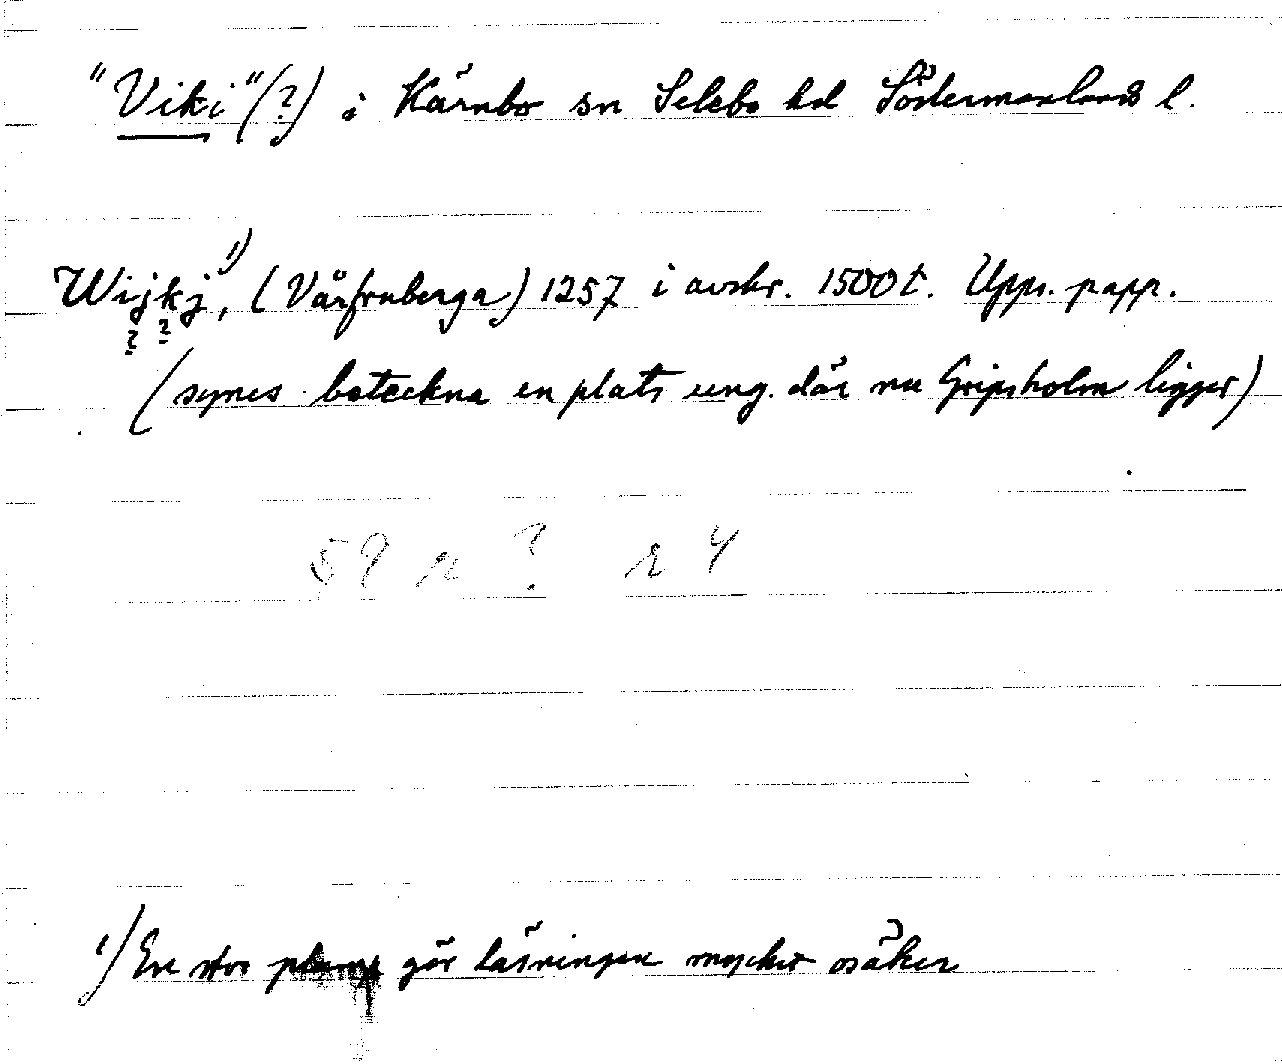 "Viki" (?) i Kärnbo sn Selebo hd Södermanlands l.
Wijkj¹⁾, (Vårfruberga) 1257 i avskr. 1500 t. Upps. papp.
? ?
(synes beteckna en plats ung. där nu Gripsholm ligger)
?
¹⁾ En stor plump gör läsningen mycket osäker